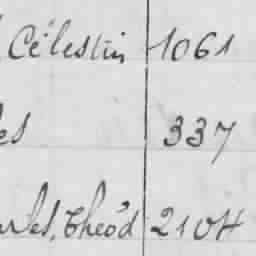 Célestin 1061
es 337
arles, Théod 2104